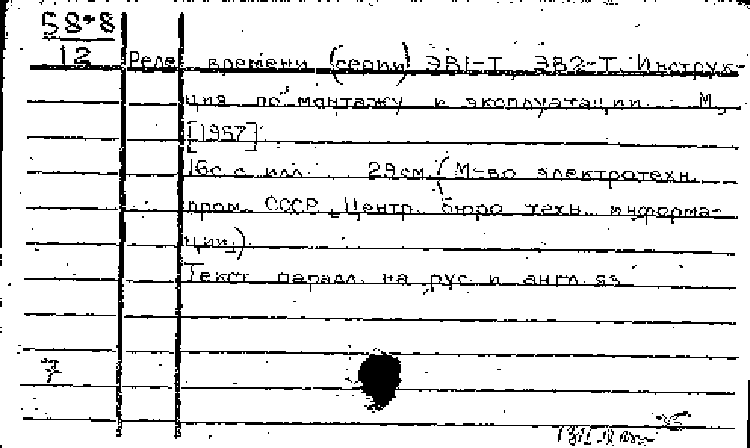 58-8
12
Реле времени (серии) ЭВ1-Т, ЭВ2-Т. Инструк-
ция по монтажу и эксплуатации. М.,
[1957].
16с с илл. 29см. (М-во электротехн.
пром. СССР. Центр. бюро техн. информа-
ции)
Текст паралл. на рус. и англ. яз.
7